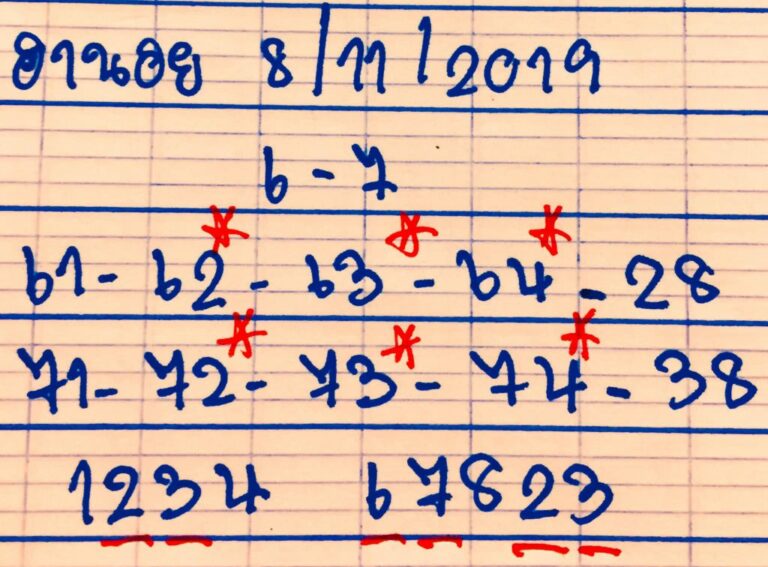 ฮานอย 8/11/2019
6-7
61-62*-63*-64*-28
71-72*-73*-74*-38
1234 67823